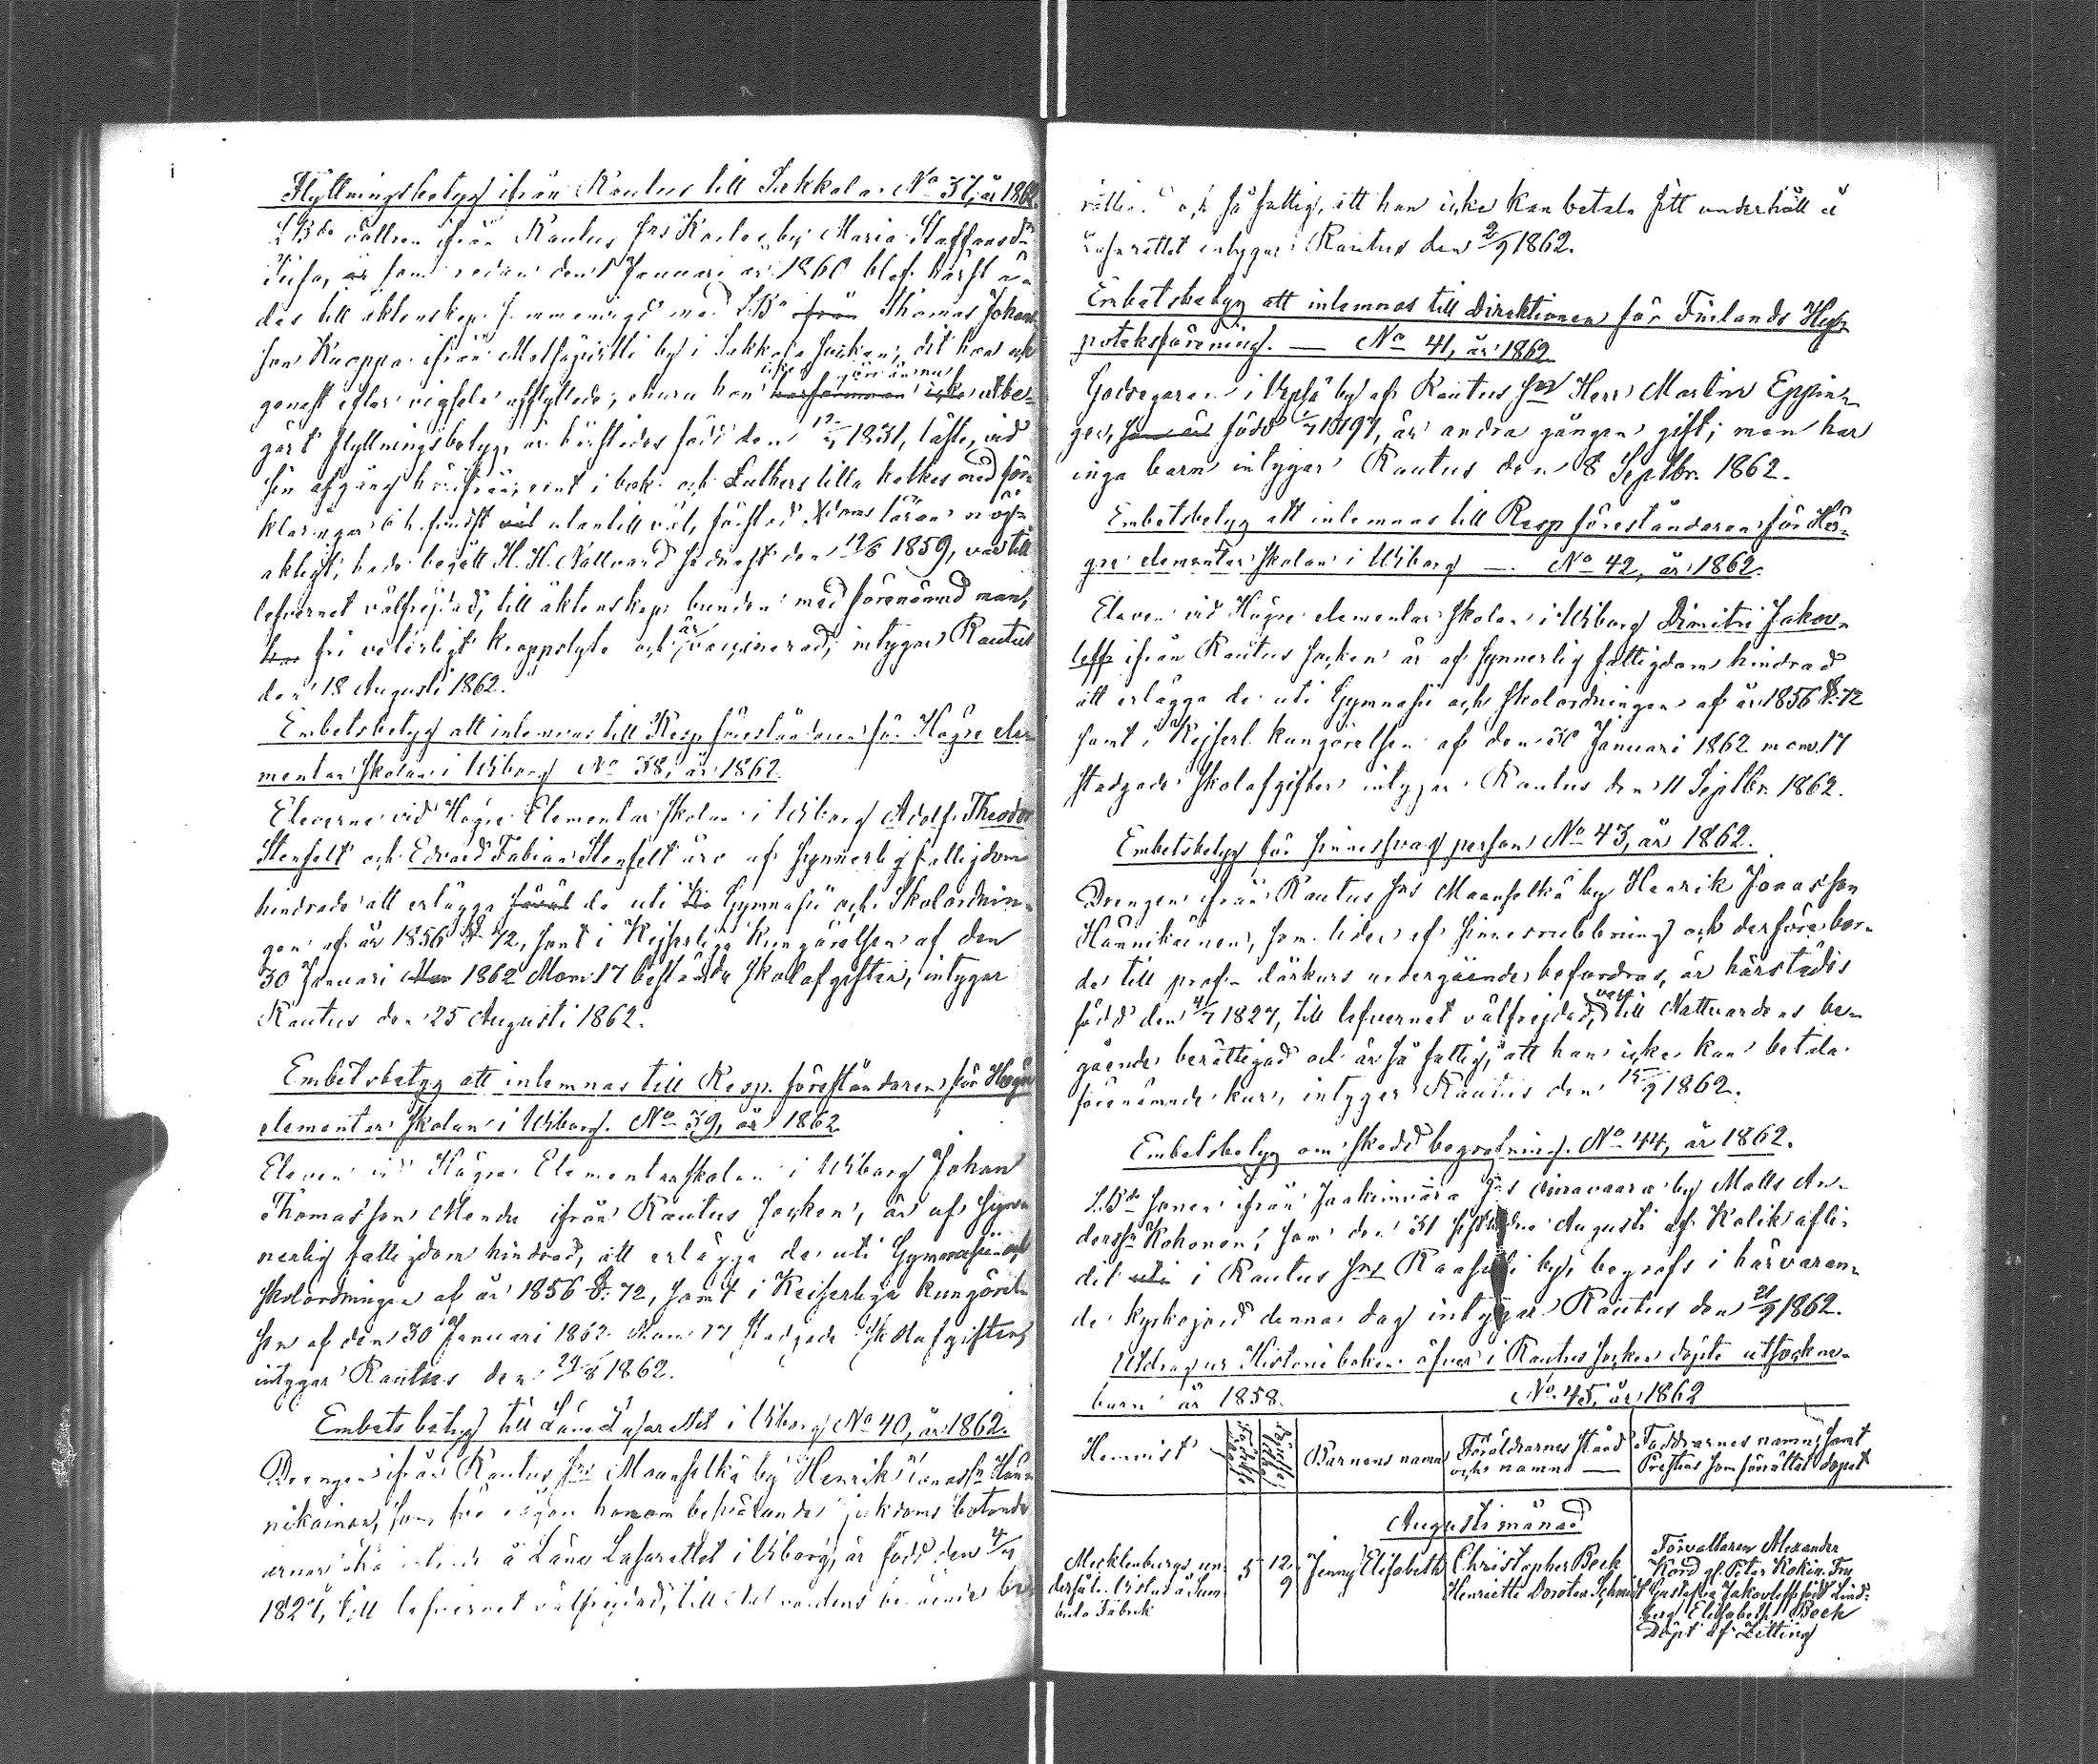 Flyttningsbetyg ifrån Rautus till Sakkola. No 37, år 1862.
L.Bde dottren ifrån Rautus Sns by Maria Staffansdr
som redan den 1 Januari år 1860 blef härst
des till äktenskap sammanvigd med L.Bn från Thomas Johans
son Kuoppa ifrån by i Sakkola Socken, dit hon ock
genast efter vigseln afflyttade, ehuru hon icke förr än nu utbe-
gärt flyttningsbetyg, är härstädes född den 1831, läste, vid
sin afgång härifrån, rent i bok och Luthers lilla katkes med för-
klaringar utantill väl, förstod Xdoms läran nöj-
aktigt, hade begått H. H. Nattvard sednast den 19/6 1859, var till
lefvernet välfrejdad, till äktenskap bunden med förenämnd man,
har fri kroppslyte och är vaccinerad, intygar Rautus
den 18 Augusti 1862.
Embetsbetyg att inlemnas till Resp. föreståndaren för Högre ele-
mentar skolan i Wiborg No 38, år 1862.
Eleverne vid Högre Elementar skolan i Wiborg Adolf Theodor
Stenfelt och Edvard Fabian Stenfelt äro af synnerlig fattigdom
hindrade att erlägga de uti Gymnasii och Skolordnin-
gen af år 1856 §. 72, samt i Kejserliga Kungörelsen af den
30 Januari 1862 Mom 17 bestämda skolafgifter, intygar
Rautus den 25 Augusti 1862.
Embetsbetyg att inlemnas till Resp. föreståndaren för Högre
elementar skolan i Wiborg. No 39, år 1862.
Eleven vid Högre Elementarskolan i Wiborg Johan
Thomasson ifrån Rautus Socken, är af synn-
nerlig fattigdom hindrad, att erlägga de uti Gymnasii och
skolordningen af år 1856 §. 72, samt i Keiserliga kungörel-
sen af den 30 Januari 1862 Mom 17 stadgade skolafgifter,
intygar Rautus den 29/8 1862.
Embets betyg till Läns Lasarettet i Wiborg No 40, år 1862.
Drengen ifrån Rautus Sns Maanselkä by Henrik Jonasson Hän-
nikäinen, som för någon honom sjukdoms botande
å Läns Lasarettet i Wiborg, är född den 4/7
1827, till lefvernet välfrejdad, till Nattvardens begående be-
rättigad och så fattig, att han icke kan betala sitt underhåll å
Lasarettet intygar Rautus den 2/9 1862.
Embetsbetyg att inlemnas till Direktionen för Finlands Hy-
poteksförening. — No 41, år 1862
Godsegaren i by af Rautus Sn Herr Martin Eppin-
ger, som är född 1797, är andra gången gift; men har
inga barn intygar Rautus den 8 Septbr. 1862.
Embetsbetyg att inlemnas till Resp föreståndaren för Hö-
gre elementar skolan i Wiborg — No 42, år 1862.
Eleven vid Högre elementar skolan i Wiborg Dimitri Jakov-
leff ifrån Rautus Socken är af synnerlig fattigdom hindrad
att erlägga de uti Gymnasii och skolordningen af år 1856 §. 72
samt i Kejserl. kungörelsen af den 30 Januari 1862 mom. 17
stadgade skolafgifter intygar Rautus den 11 Septbr. 1862.
Embetsbetyg för sinnessvag person No 43, år 1862.
Drengen ifrån Rautus Sns Maanselkä by Henrik Jonasson
Hännikäinen, som lider af sinnesrubbning och derföre bor-
de till undergående befordras, är härstädes
född den 4/7 1827, till lefvernet välfrejdad, till Nattvardens be-
gående berättigad och är så fattig, att han icke kan betala
förenämnde kur, intygar Rautus den 15/9 1862.
Embetsbetyg om skedd begrafning. No 44, år 1862.
L.Bde sonen ifrån Jaakimvaara Sns by Matts An-
dersson Kokonen, som den 31 sistledne Augusti af Kolik afli-
dit uti i Rautus Sns by, begrafs i härvaran-
de kyrkojord denna dag intygar Rautus den 21/9 1862.
Utdrag ur Historieboken öfver i Rautus socken döpte utsockne-
barn år 1858. No 45, år 1862
Hemvist Barnens namn Föräldrarnes stånd och namn — Faddrarnes namn, samt Presten som förrättat dopet
Augusti månad
Mecklenburgs un-
dersåte
Fabrik
5 12/9 Jenny Elisabeth Christopher Beck
Henrietta Dorotea Schmidt
Förvaltaren Alexander
Kord gf. Peter Kokin Fru
Gustafva Jakovleff född Lind-
berg Elisabeth Beck
Döpt af Zitting